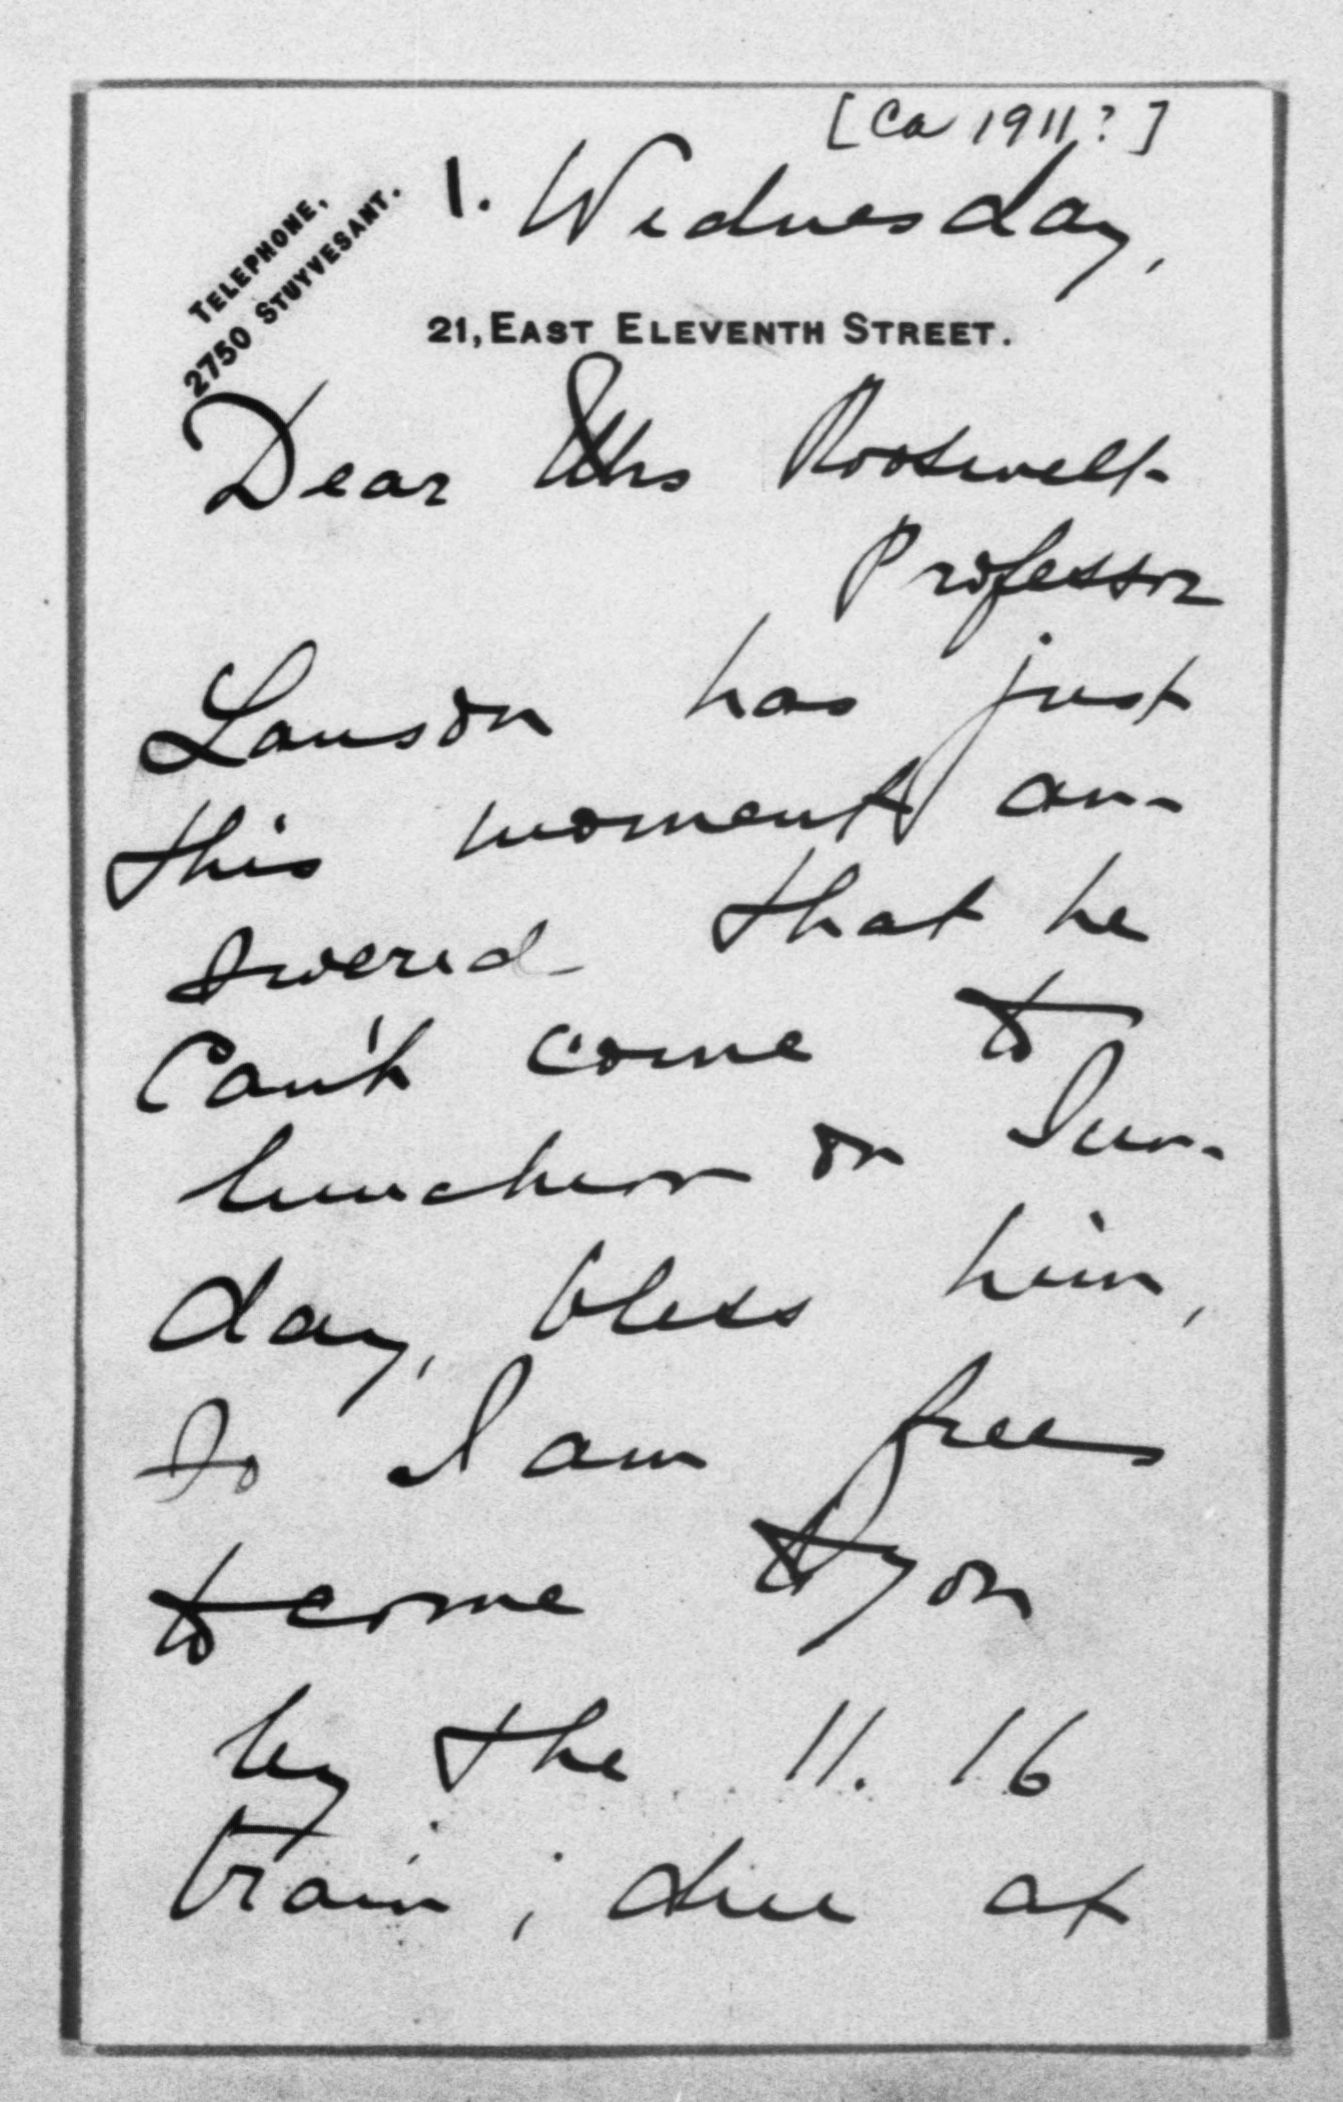 [Ca 1911?]
1. Wednesday,
TELEPHONE,
2750 STUYVESANT.
21, EAST ELEVENTH STREET.
Dear Mrs Roosevelt-
Professor
Lanson has just
this moment an-
swered that he
Can't come to
luncheon on Sun-
day, bless him,
So I am free
to come to you
by the 11.16
train; due at